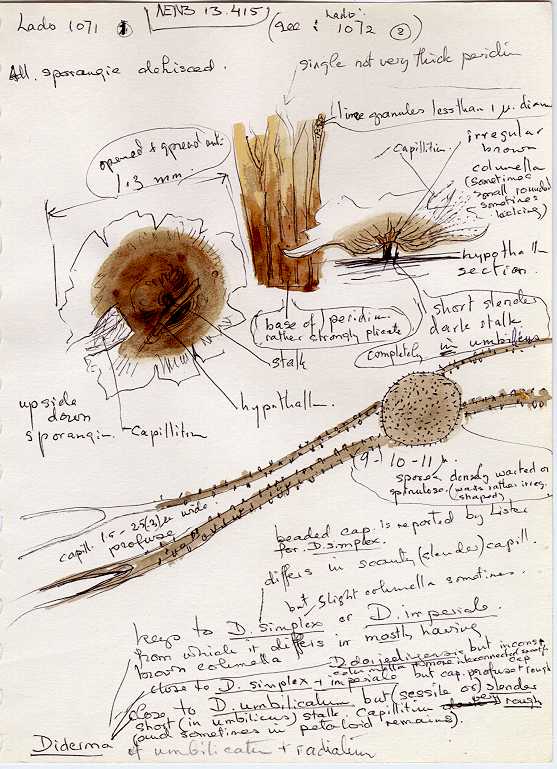 Lado 1071
NENB 13.415
(see: Lado: 1072 (2)
All sporangia dehisced.
single not very thick peridium
lime granules less than 1 µ. diam
opened & spread out
1.3 mm.
Capillitium
irregular
brown
columella
(sometimes
small rounded
sometimes
lacking)
hypothall
section.
base of peridium
rather strongly plicate
short slender
dark stalk
completely
in umbilicus
stalk
hypothall
upside
down
sporangium.
Capillitium
9-10-11 µ.
spores densely warted or
spinulose. (warts rather irreg.
shaped)
capill. 1.5-2.5(3) µ wide
profuse
beaded cap. is reported by Lister
for D. simplex.
differs in scanty (slender) capill.
but slight columella sometimes.
keys to D. simplex or D. imperiale.
from which it differs in mostly having
brown columella
but incons.
columella + more interconnected
cap
close to D. simplex + imperiale but cap. profuse + rough
close to D. umbilicatum but (sessile or) slender
short (in umbilicus) stalk. Capillitium very rough
(and sometimes in petaloid remains).
Diderma cf umbilicatum + radiatum